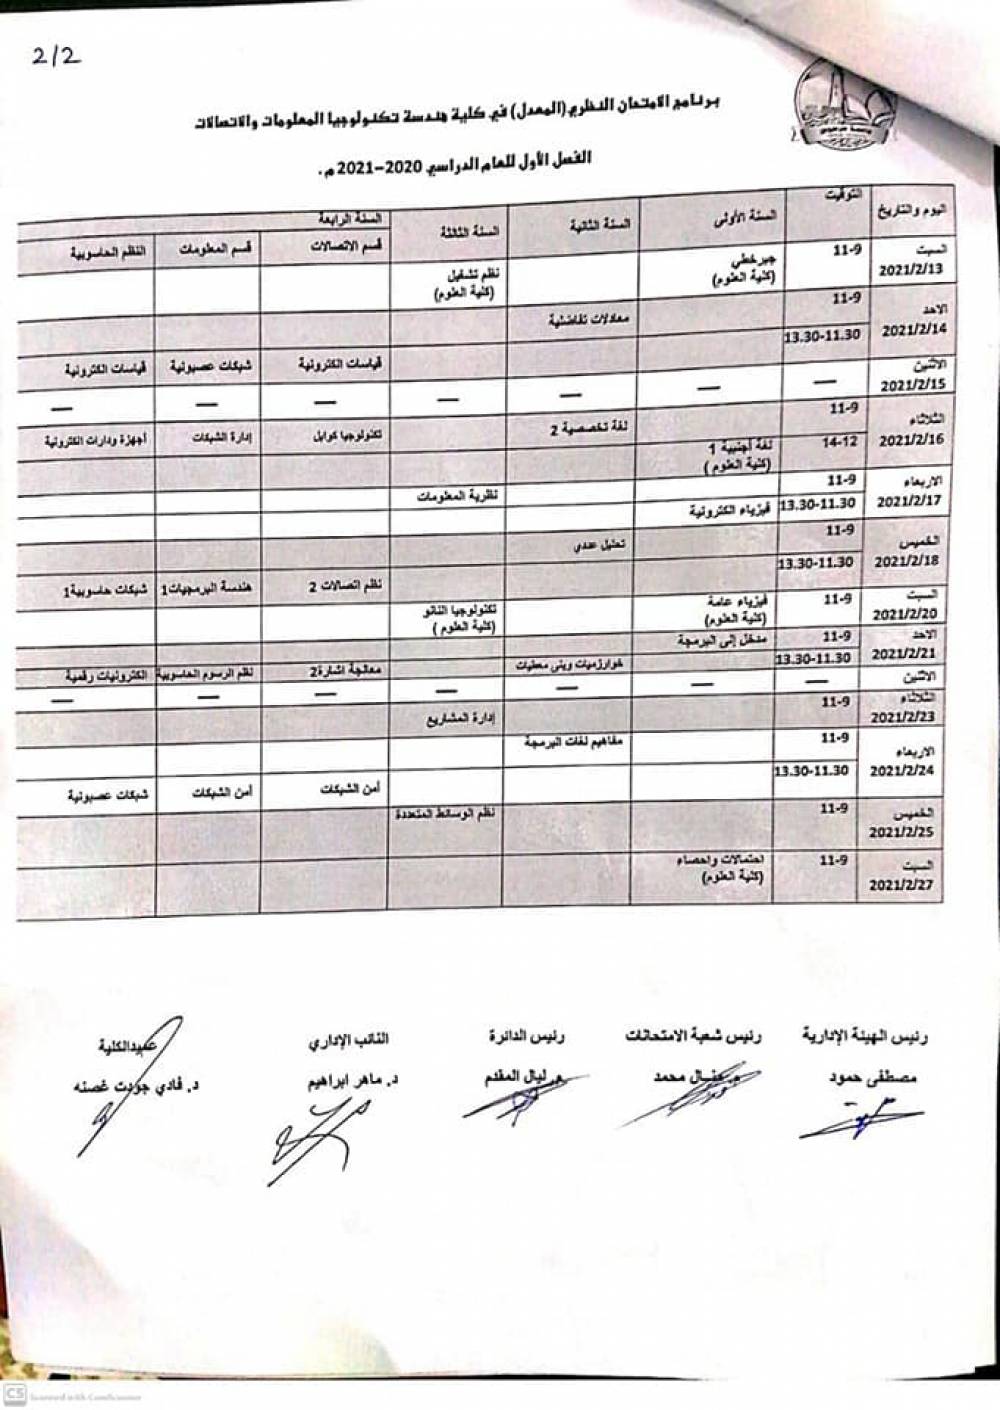 2/2
برنامج الامتحان النظري (المعدل) في كلية هندسة تكنولوجيا المعلومات والاتصالات
الفصل الأول للعام الدراسي 2020-2021 م.
اليوم والتاريخ التوقيت السنة الأولى السنة الثانية السنة الثالثة السنة الرابعة
قسم الاتصالات قسم المعلومات النظم الحاسوبية
السبت 2021/2/13 11-9 جبر خطي (كلية العلوم) نظم تشغيل (كلية العلوم)
الاحد 2021/2/14 11-9 معادلات تفاضلية
13.30-11.30 قياسات الكترونية شبكات عصبونية قياسات الكترونية
الاثنين 2021/2/15 — — — — — — —
الثلاثاء 2021/2/16 11-9 لغة تخصصية 2 تكنولوجيا كوابل إدارة الشبكات أجهزة ودارات الكترونية
14-12 لغة أجنبية 1 (كلية العلوم)
الاربعاء 2021/2/17 11-9 نظرية المعلومات
13.30-11.30 فيزياء الكترونية
الخميس 2021/2/18 11-9 تحليل عددي
13.30-11.30 نظم اتصالات 2 هندسة البرمجيات1 شبكات حاسوبية1
السبت 2021/2/20 11-9 فيزياء عامة (كلية العلوم) تكنولوجيا النانو (كلية العلوم)
الاحد 2021/2/21 11-9 مدخل إلى البرمجة
13.30-11.30 خوارزميات وبنى معطيات معالجة اشارة2 نظم الرسوم الحاسوبية الكترونيات رقمية
الاثنين — — — — — — —
الثلاثاء 2021/2/23 11-9 إدارة المشاريع
الاربعاء 2021/2/24 11-9 مفاهيم لغات البرمجة
13.30-11.30 أمن الشبكات أمن الشبكات شبكات عصبونية
الخميس 2021/2/25 11-9 نظم الوسائط المتعددة
السبت 2021/2/27 11-9 احتمالات واحصاء (كلية العلوم)
رئيس الهيئة الإدارية رئيس شعبة الامتحانات رئيس الدائرة النائب الإداري عميد الكلية
مصطفى حمود محمد م. ليال المقدم د. ماهر ابراهيم د. فادي جودت غصنه
CS Scanned with CamScanner